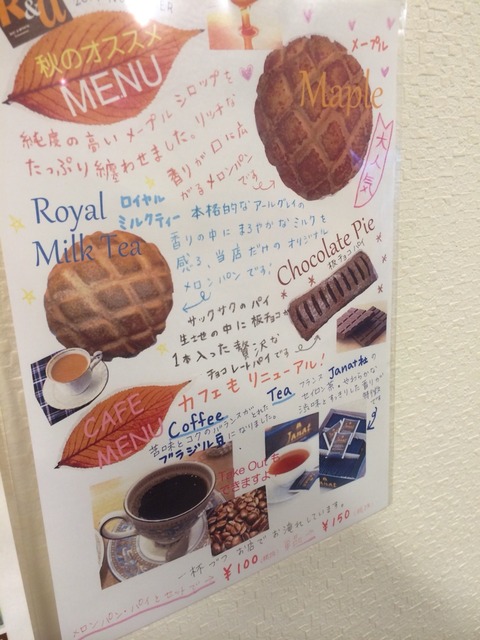 R&U
秋のオススメ
MENU
メープル
Maple
大人気
純度の高いメープルシロップを
たっぷり纏わせました。リッチな
香りが口に広
がるメロンパン
です
Royal
Milk Tea
ロイヤル
ミルクティー
本格的なアールグレイの
香りの中にまろやかなミルクを
感る、当店だけのオリジナル
メロンパンです!
Chocolate Pie
板チョコパイ
サックサクのパイ
生地の中に板チョコが
1本入った贅沢な
チョコレートパイです
CAFE
MENU
カフェもリニューアル!
Coffee
苦味とコクのバランスがとれた
ブラジル豆になりました。
Tea
フランスJanat社の
セイロン茶。やわらかな
渋味とすっきりした香りが
特徴
です
Janat
Take Outも
できますよ
一杯づつお店でお淹れしています。
メロンパン・パイとセットで
¥100
¥150